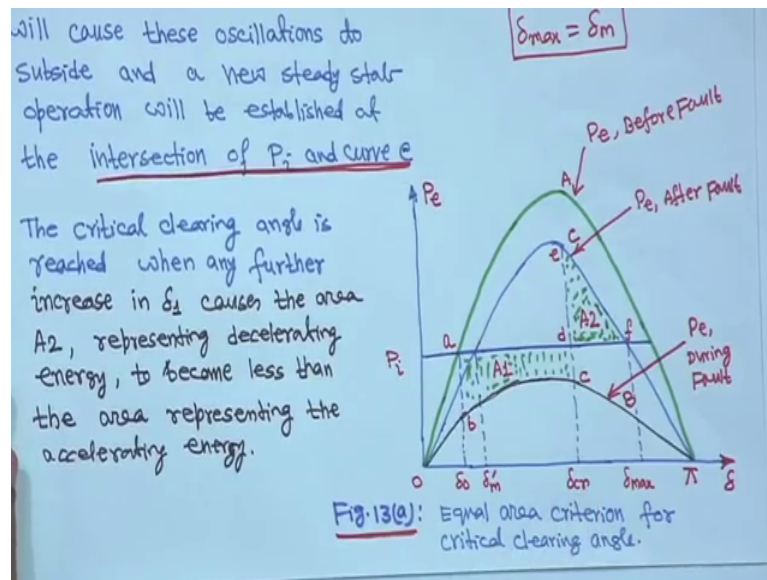 will cause these oscillations to
subside and a new steady stat-
operation will be established at
the intersection of Pi and curve e
The critical clearing angle is
reached when any further
increase in δ1 causes the area
A2, representing decelerating
energy, to become less than
the area representing the
accelerating energy.
δmax = δm
Pe, Before Fault
Pe
A
Pe, After Fault
C
e
A2
a
d
f
Pi
A1
Pe,
During
Fault
c
B
b
0
δ0
δ'm
δcr
δmax
π
δ
Fig.13(a): Equal area criterion for
critical clearing angle.